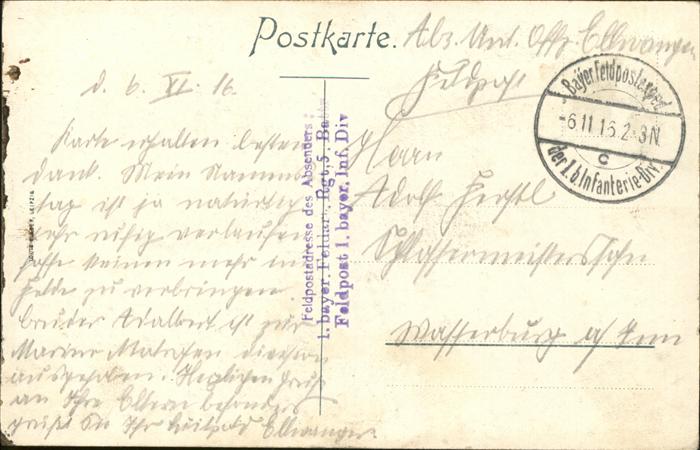 Postkarte.
Abs. Unt. Offz. Ellwanger
Feldpost
Bayer. Feldpostexped.
-6.11.16.2-3N.
c
der 1.b. Infanterie-Div.
d. 6. XI. 16
Karte erhalten besten
Dank. Mein Namens
tag ist ja natürlich
sehr ruhig verlaufen
hoffe keinen mehr im
Felde zu verbringen
Bruder Adalbert ist zur
Marine Matrosen division
ausgehoben. Herzlichen Gruß
an Ihre Eltern besonders
grüßt Sie Ihr Luitpold Ellwanger
Feldpostadresse des Absenders:
1. bayer. Feldart. Rgt, 5. Batt
Feldpost 1. bayer. Inf. Div
Herrn
Adolf
Schlossermeisterssohn
Wasserburg a/Inn